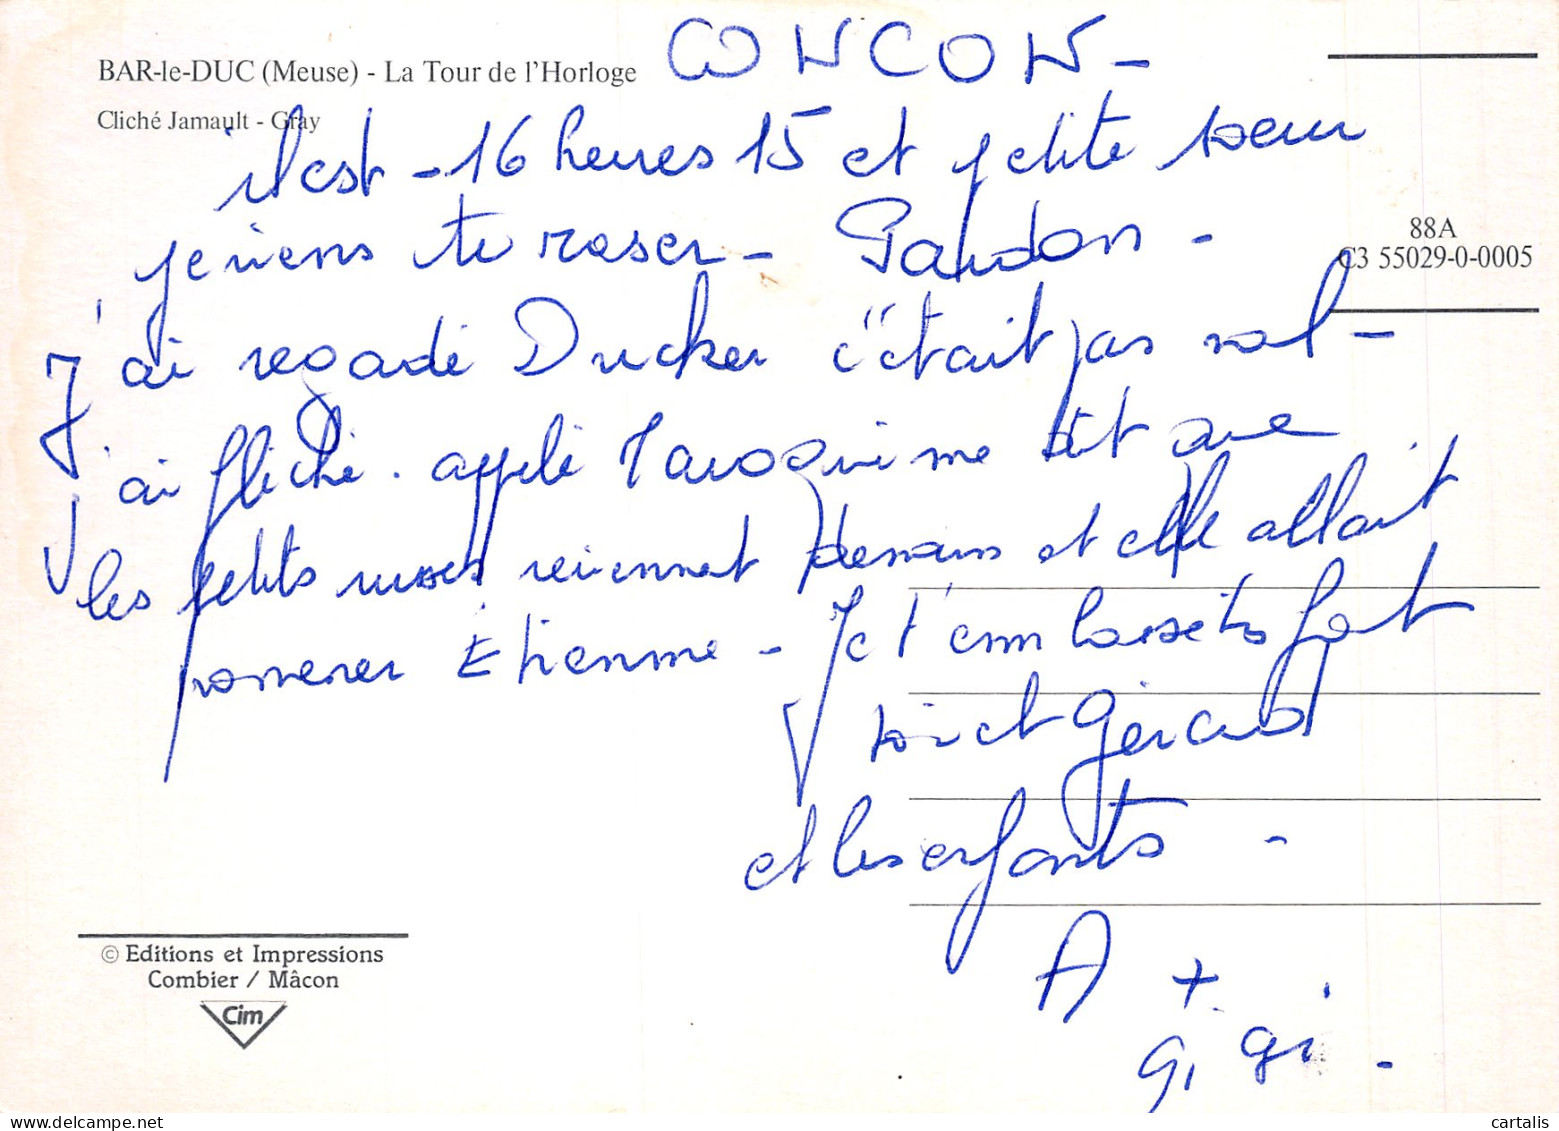 BAR-le-DUC (Meuse) - La Tour de l'Horloge
Cliché Jamault - Gray
CONCON -
il est - 16 heures 15 et petite soeur
je viens te raser - Pardon -
J'ai regardé Ducker c'était pas mal -
J'ai fliché. applé Maroquin me dit que
les petits russes reviennent demain et elle allait
promener Étienne - Je t'embrasse très fort
toi et Gérard
et les enfants -
A +
gi gi -
88A
C3 55029-0-0005
© Editions et Impressions
Combier / Mâcon
Cim
cartalis
www.delcampe.net